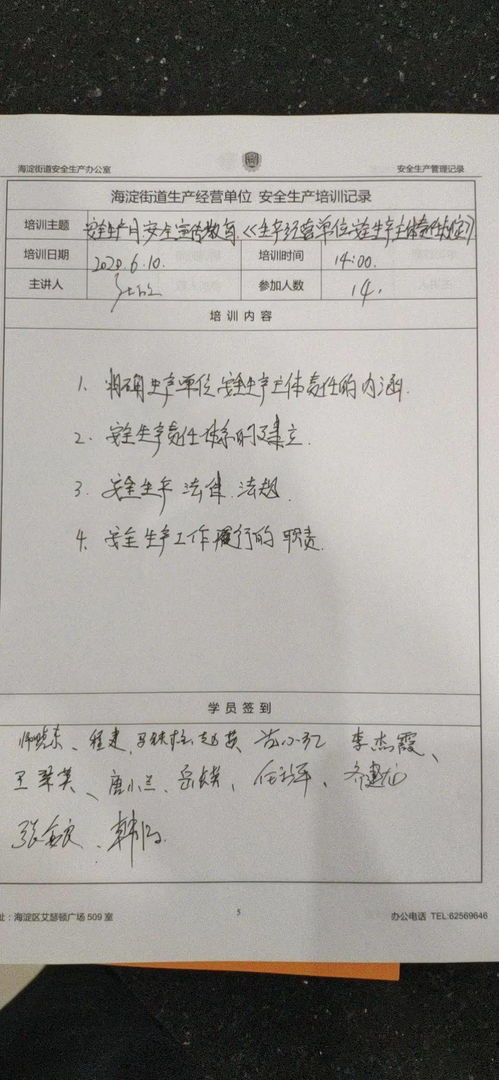 海淀街道安全生产办公室 安全生产管理记录
海淀街道生产经营单位 安全生产培训记录
培训主题 安全生产月安全宣传教育《生产经营单位安全生产主体责任规定》
培训日期 2020.6.10. 培训时间 14:00.
主讲人 参加人数 14.
培训内容
1. 明确生产单位安全生产主体责任的内涵.
2. 安全生产责任体系的建立.
3. 安全生产法律.法规.
4. 安全生产工作履行的职责.
学员签到
程建、李杰霞、
王翠英、唐小兰、
韩
址：海淀区艾瑟顿广场 509 室 5 办公电话 TEL:62569646